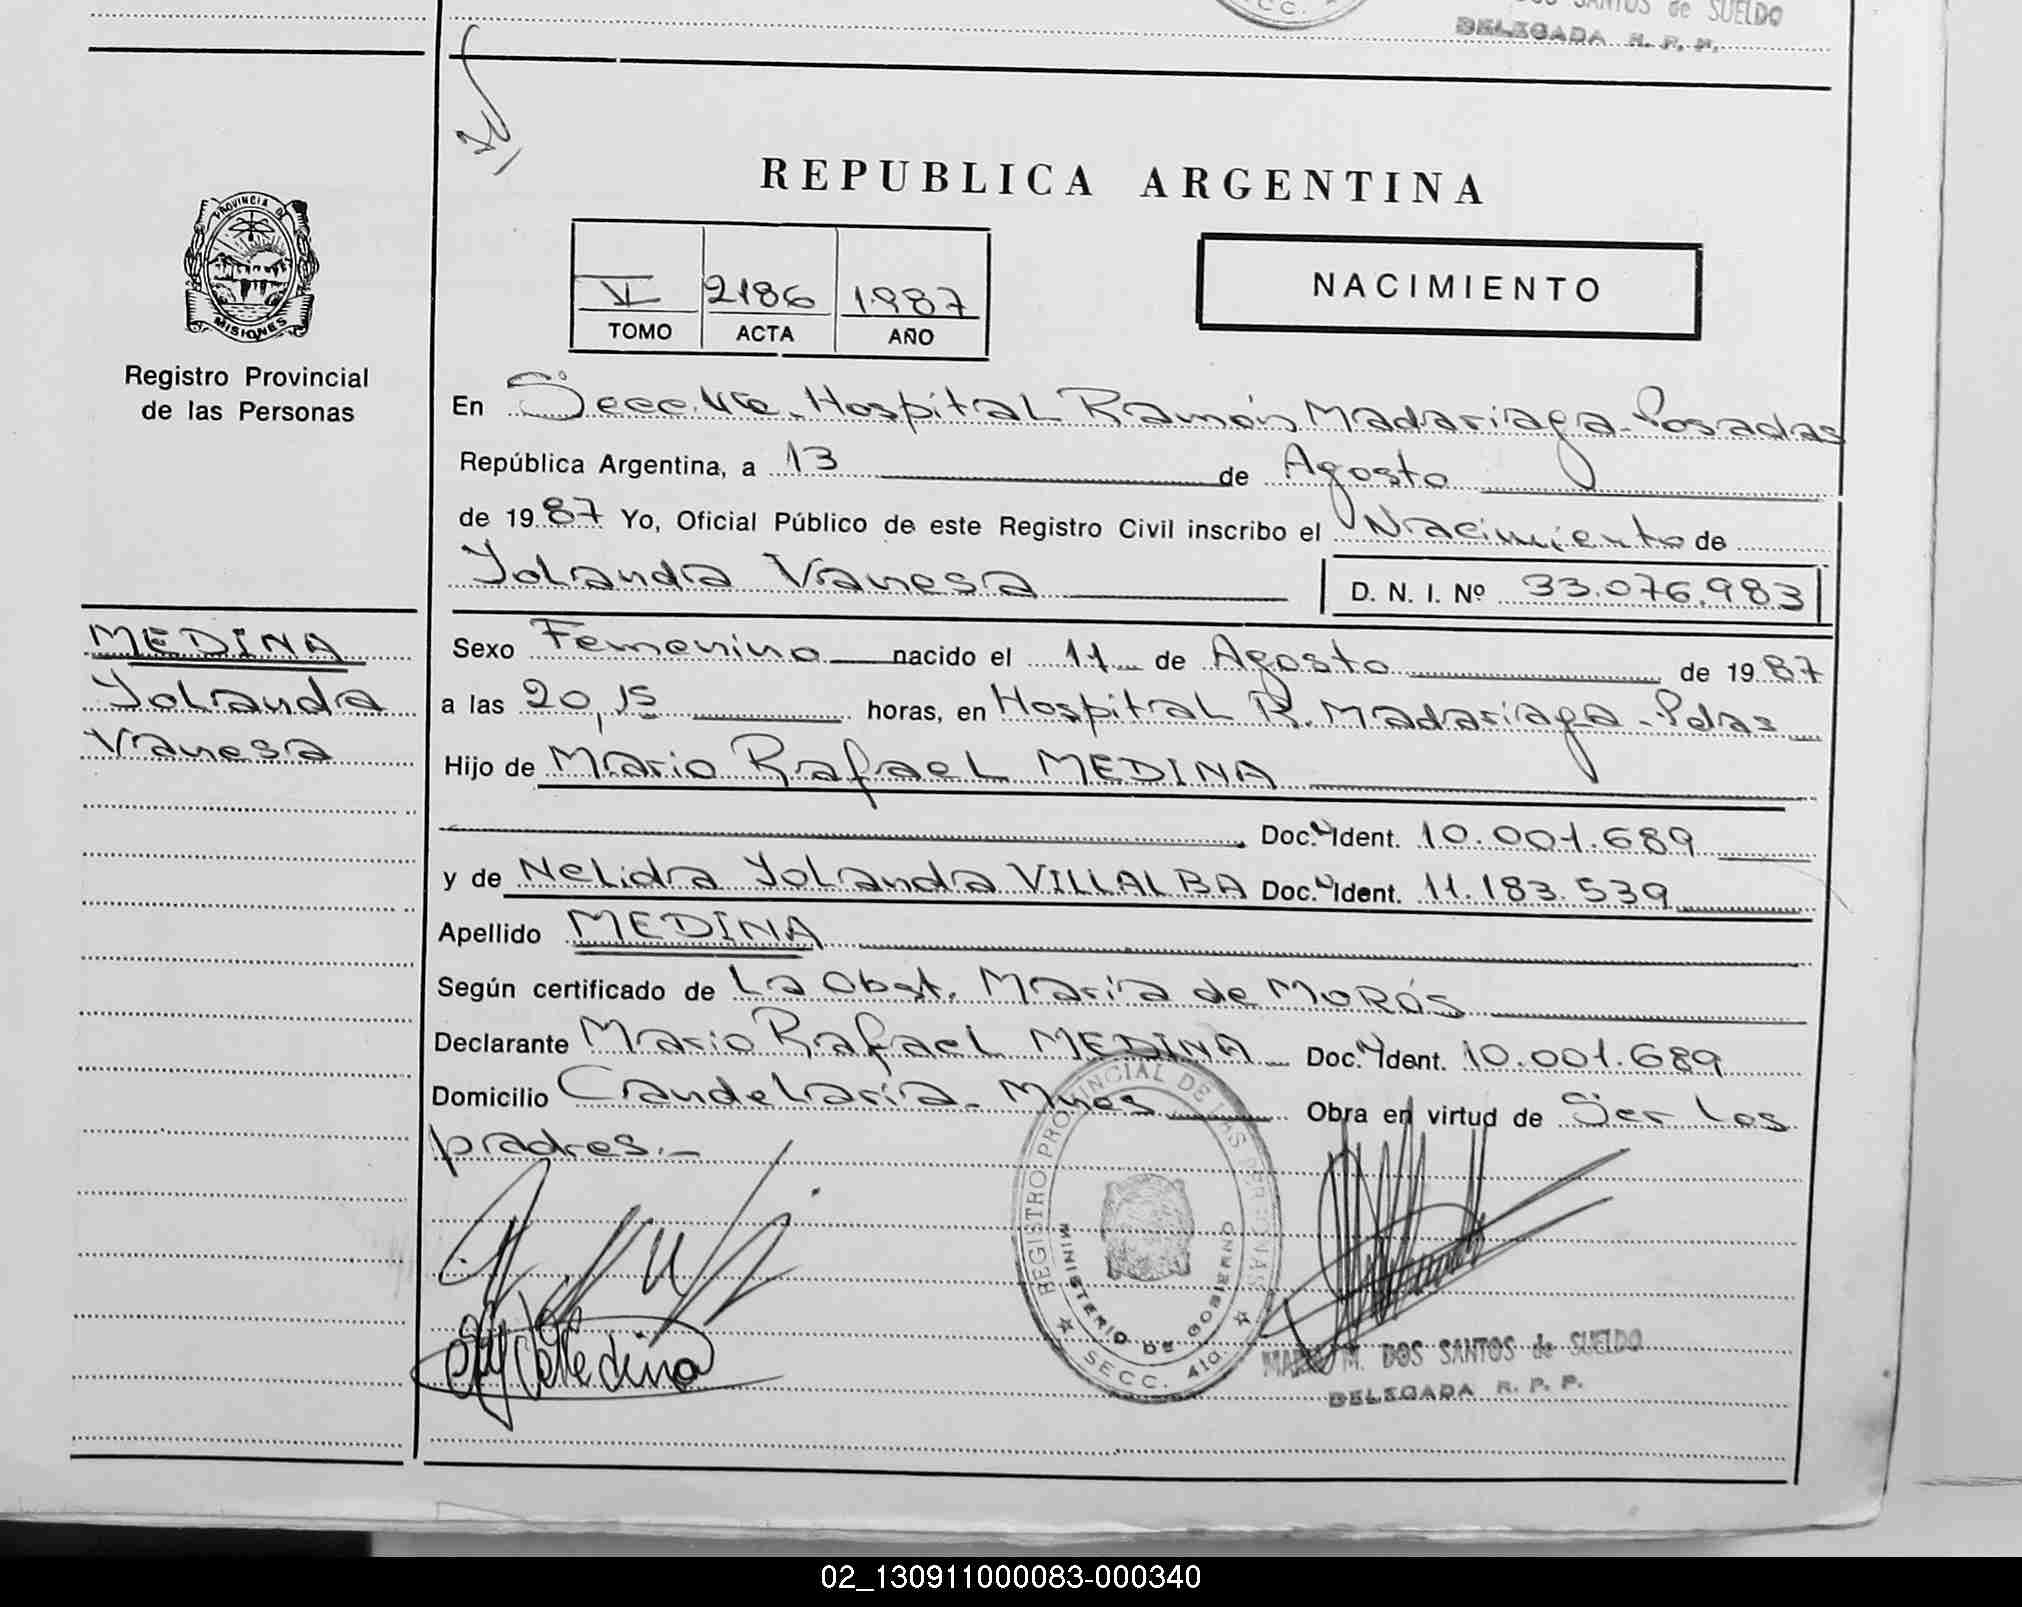 SANTOS de SUELDO
DELEGADA R. P. P.
REPUBLICA ARGENTINA
PROVINCIA DE
MISIONES
Registro Provincial
de las Personas
VI 2186 1987
TOMO ACTA AÑO
NACIMIENTO
En Secc. Hospital Ramón Madariaga-Posadas
República Argentina, a 13 de Agosto
de 1987 Yo, Oficial Público de este Registro Civil inscribo el Nacimiento de
Yolanda Vanesa D. N. I. Nº 33.076.983
MEDINA
Yolanda
Vanesa
Sexo Femenino nacido el 11 de Agosto de 1987
a las 20,15 horas, en Hospital R. Madariaga-Pdas
Hijo de Mario Rafael MEDINA
Doc. Ident. 10.001.689
y de Nelida Yolanda VILLALBA Doc. Ident. 11.183.539
Apellido MEDINA
Según certificado de La Obst. María de MORÁS
Declarante Mario Rafael MEDINA Doc. Ident. 10.001.689
Domicilio Candelaria- Mnes Obra en virtud de Ser los
padres.-
REGISTRO PROVINCIAL DE LAS PERSONAS
MINISTERIO DE GOBIERNO
SECC. 41a
M. DOS SANTOS de SUELDO
DELEGADA R. P. P.
02_130911000083-000340